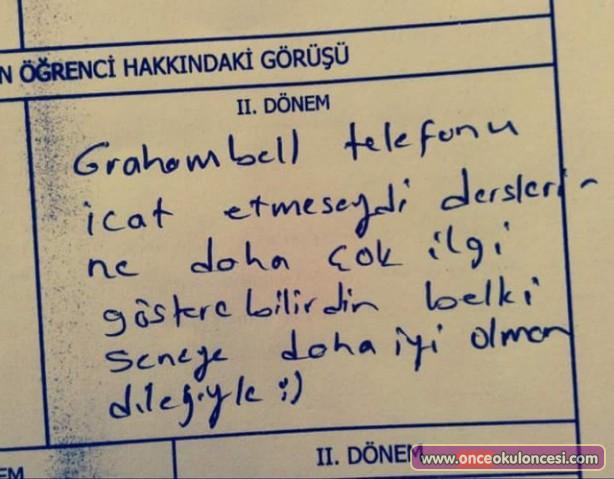 N ÖĞRENCİ HAKKINDAKİ GÖRÜŞÜ
II. DÖNEM
Grahambell telefonu
icat etmeseydi dersleri-
ne daha çok ilgi
gösterebilirdin belki
seneye daha iyi olman
dileğiyle :)
EM
II. DÖNEM
www.onceokuloncesi.com